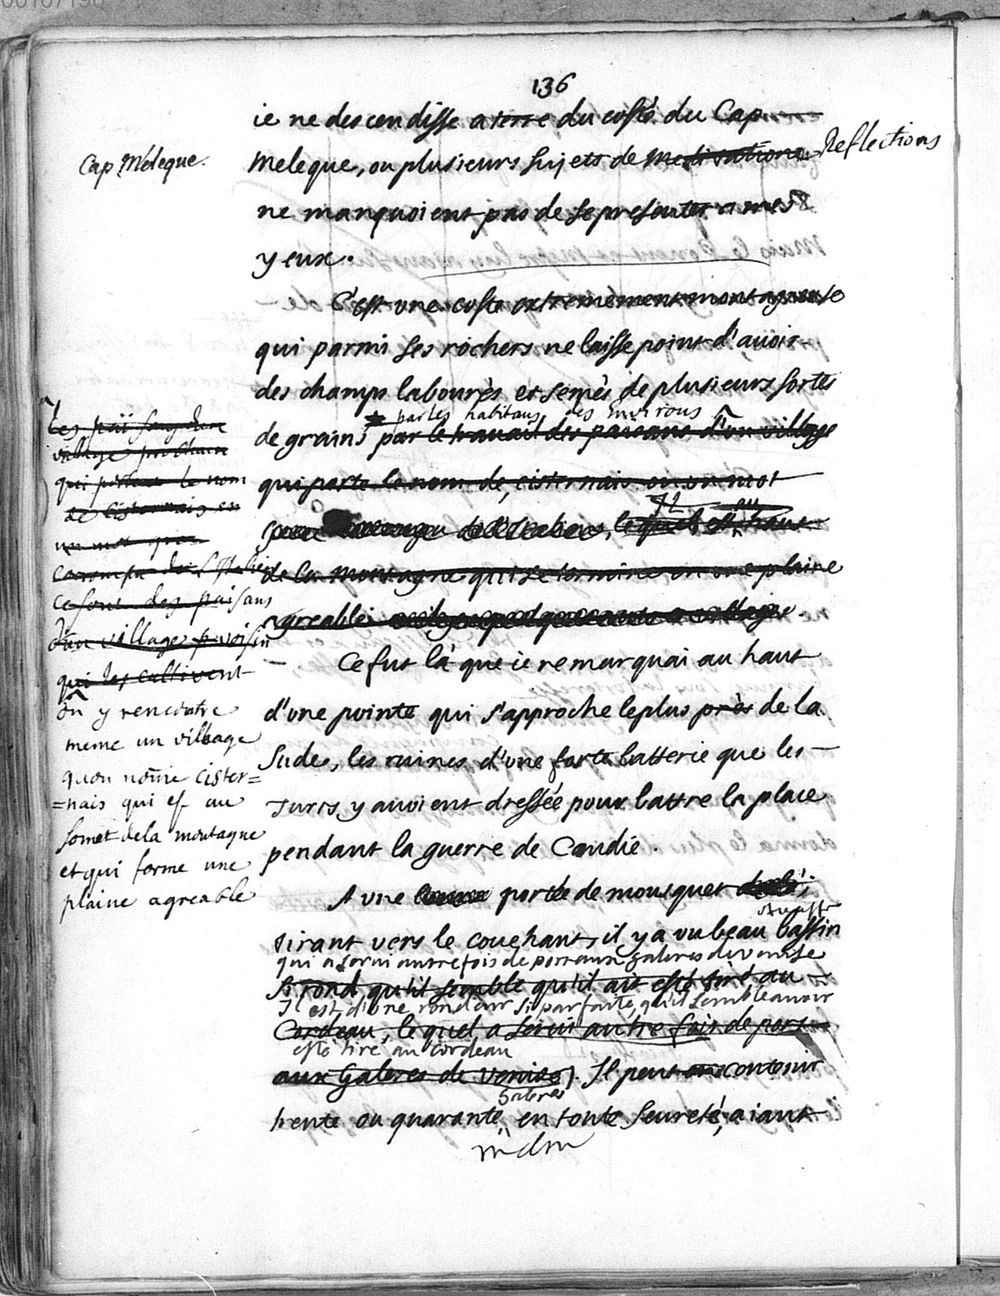 136
ie ne descendisse a terre du costé du Cap
Cap Méleque.
Meleque, ou plusieurs sujets de Meditations Reflections
ne manquoient pas de se presenter a mes
yeux.
C'est une coste extremement montagneuse
qui parmi ses rochers ne laisse point d'auoir
des champs labourés et semés de plusieurs sortes
par les habitans des environs
de grains par le travail des paisans d'un village
qui porte le nom de, cisternais ou un mot
Il au
lequel est haut
de la Montagne qui se termine en une plaine
agreable
Les païsans d'un
village prochain
qui portent le nom
de Cisternais en
un mot grec
corrompu de l'Italien
ce sont des paisans
d'un village voisin
qui les cultivent
on y rencontre
meme un village
quon nome Cister=
=nais qui est au
somet de la montagne
et qui forme une
plaine agreable
Ce fut là que ie remarquai au haut
d'une pointe qui s'approche le plus près de la
Sude, les ruines d'une forte batterie que les
Turcs y auoient dressée pour battre la place
pendant la guerre de Candie.
A une portée de mousquet
tirant vers le couchant, il y a un beau bassin
qui a servi autrefois de port aux galeres de venise
si rond qu'il semble qu'il ait esté tiré au
Il est d'une rondeur si parfaite, qu'il semble avoir
Cordeau, lequel a serui autre fois de port
esté tiré au Cordeau
aux Galeres de Venise). Il peut en contenir
Galeres
trente ou quarante, en toute seureté, aiant